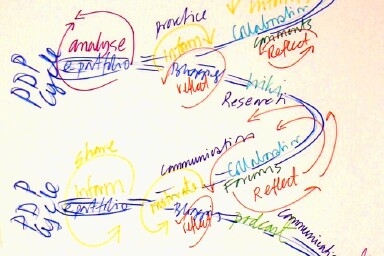 PDP
Cycle
analyse
e portfolio
practice
inform
Blogging
reflect
Collaboration
Comments
Reflect
wiki
Research
PDP
Cycle
share
inform
e portfolio
communication
Bloggin
reflect
Collaboration
Forums
Reflect
podcast
communication